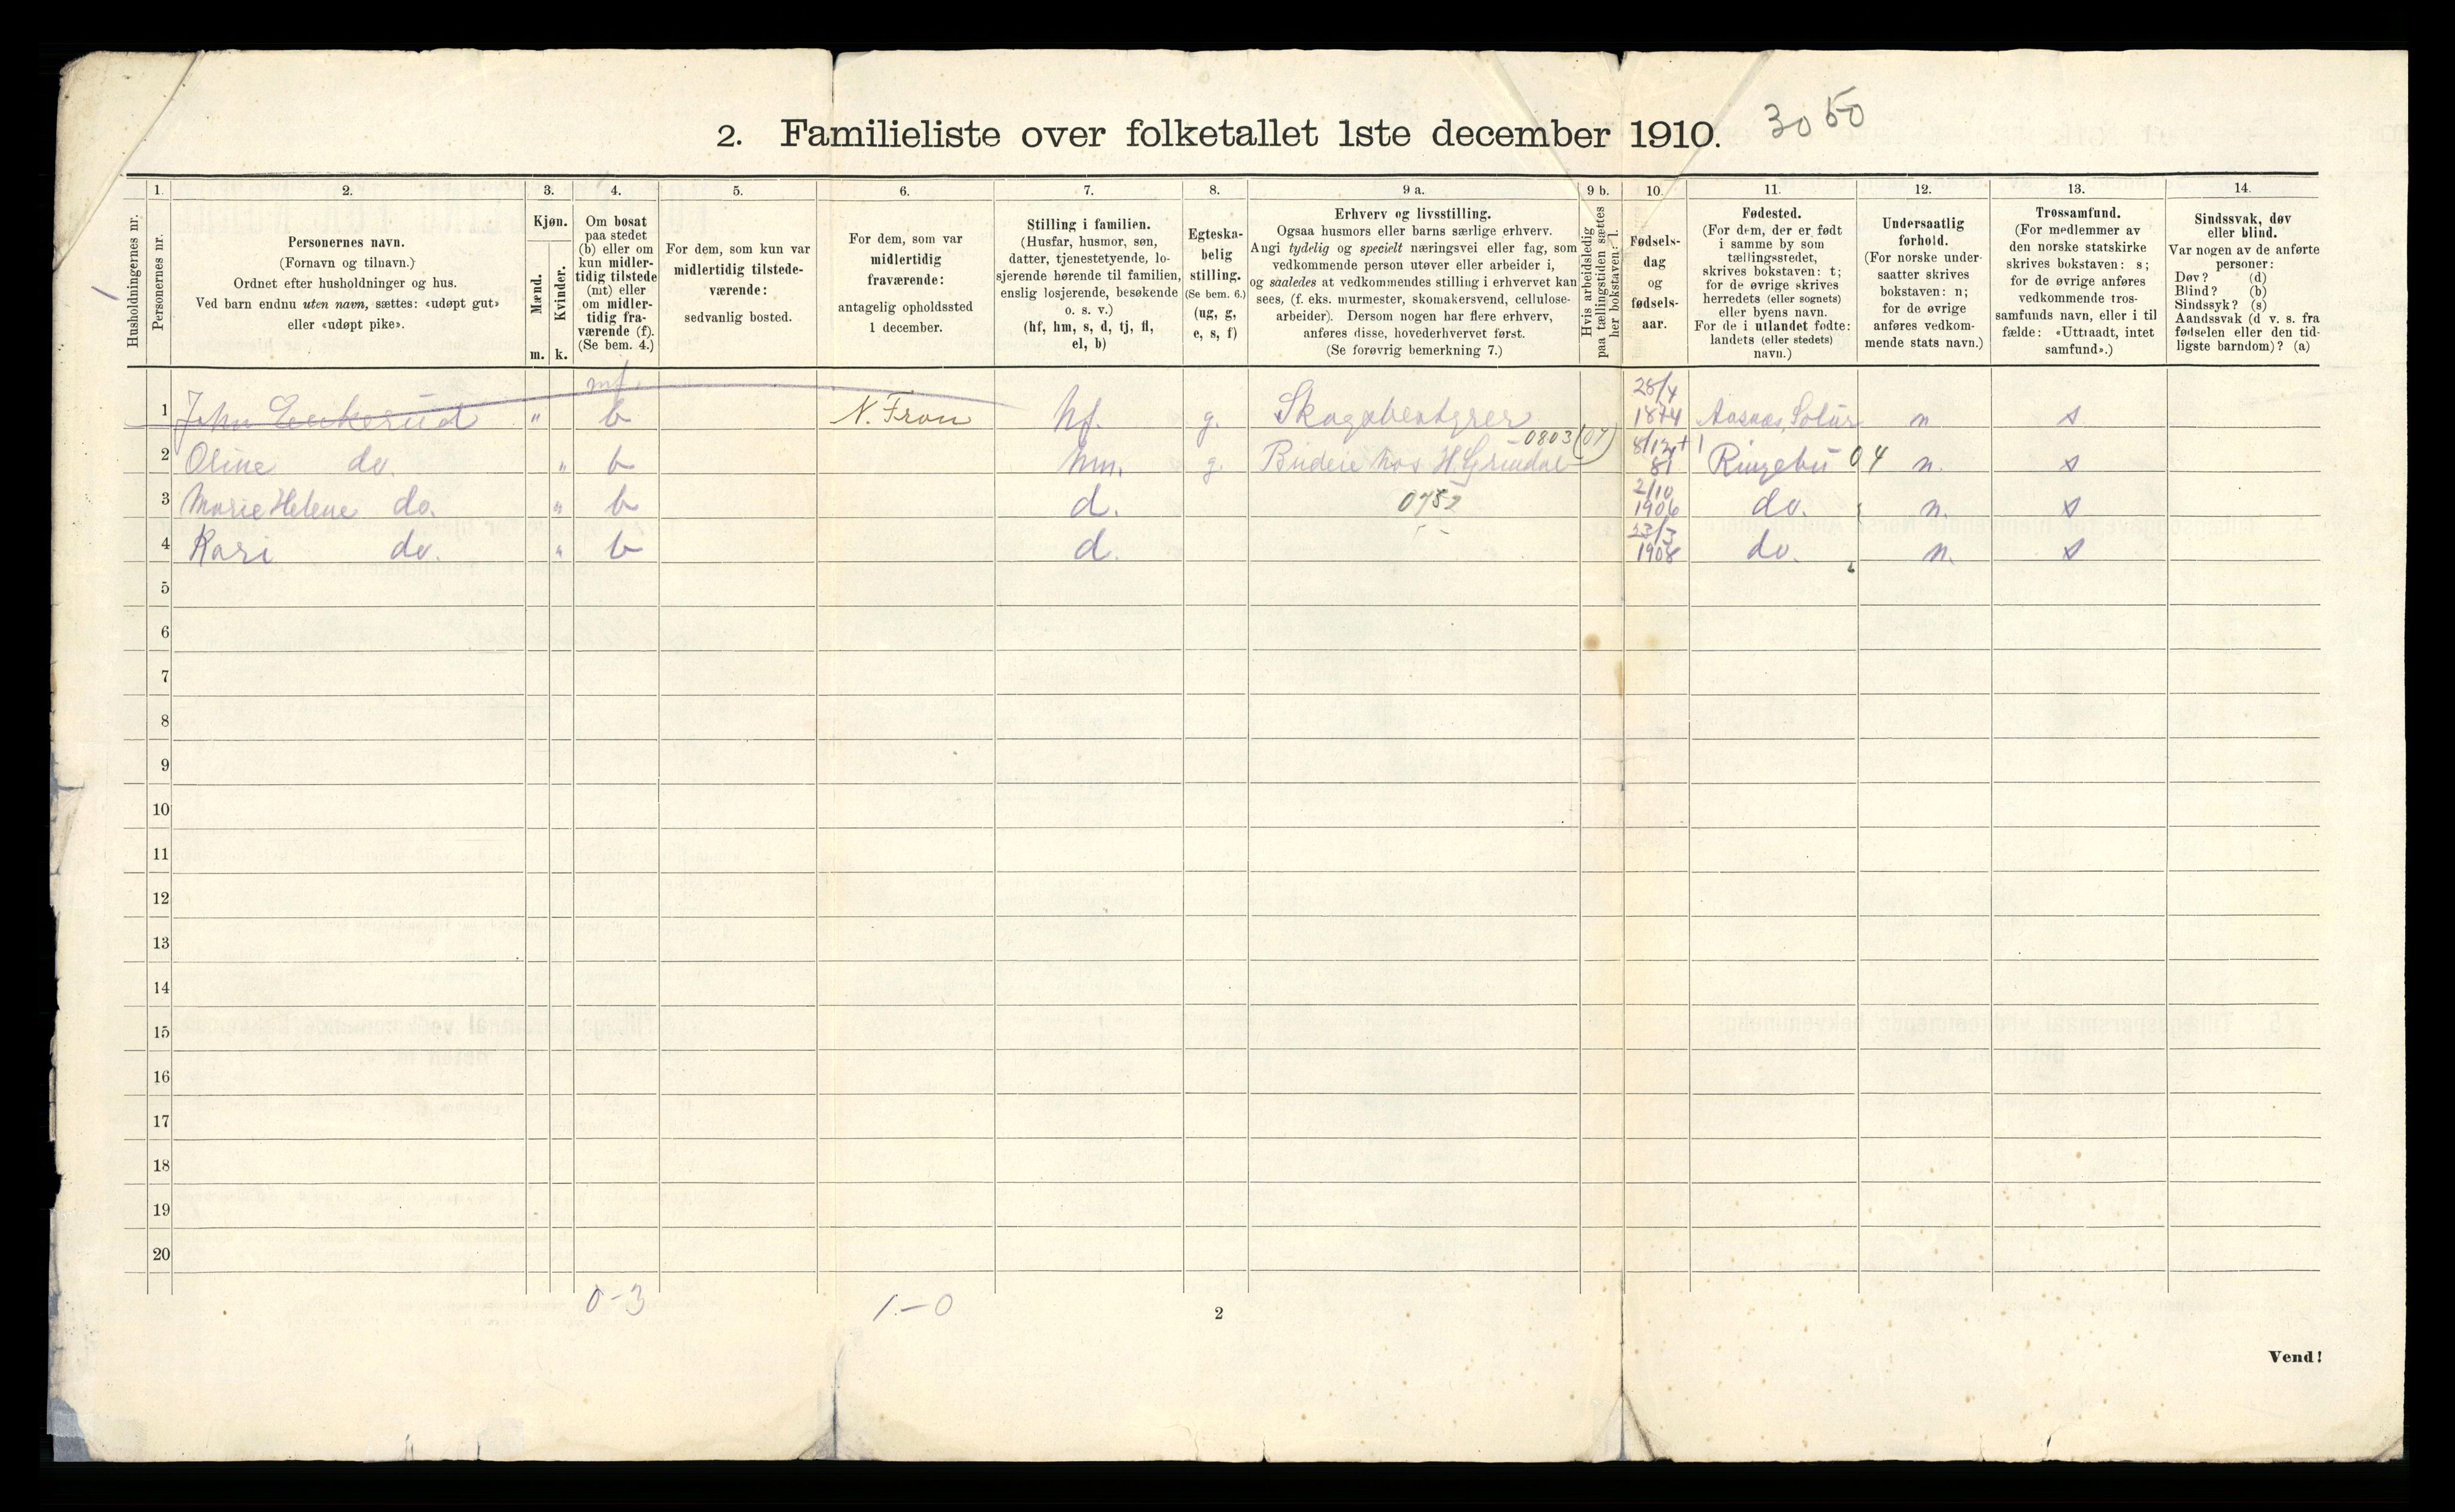 2. Familieliste over folketallet 1ste december 1910. 3050
Husholdningernes nr.
1.
Personernes nr.
2.
Personernes navn.
(Fornavn og tilnavn.)
Ordnet efter husholdninger og hus.
Ved barn endnu uten navn, sættes: «udøpt gut»
eller «udøpt pike».
3.
Kjøn.
Mænd.
Kvinder.
m. k.
4.
Om bosat
paa stedet
(b) eller om
kun midler-
tidig tilstede
(mt) eller
om midler-
tidig fra-
værende (f).
(Se bem. 4.)
5.
For dem, som kun var
midlertidig tilstede-
værende:
sedvanlig bosted.
6.
For dem, som var
midlertidig
fraværende:
antagelig opholdssted
1 december.
7.
Stilling i familien.
(Husfar, husmor, søn,
datter, tjenestetyende, lo-
sjerende hørende til familien,
enslig losjerende, besøkende
o. s. v.)
(hf, hm, s, d, tj, fl,
el, b)
8.
Egteska-
belig
stilling.
(Se bem. 6.)
(ug, g,
e, s, f)
9 a.
Erhverv og livsstilling.
Ogsaa husmors eller barns særlige erhverv.
Angi tydelig og specielt næringsvei eller fag, som
vedkommende person utøver eller arbeider i,
og saaledes at vedkommendes stilling i erhvervet kan
sees, (f. eks. murmester, skomakersvend, cellulose-
arbeider). Dersom nogen har flere erhverv,
anføres disse, hovederhvervet først.
(Se forøvrig bemerkning 7.)
9 b.
Hvis arbeidsledig
paa tællingstiden sættes
her bokstaven: l.
10.
Fødsels-
dag
og
fødsels-
aar.
11.
Fødested.
(For dem, der er født
i samme by som
tællingsstedet,
skrives bokstaven: t;
for de øvrige skrives
herredets (eller sognets)
eller byens navn.
For de i utlandet fødte:
landets (eller stedets)
navn.)
12.
Undersaatlig
forhold.
(For norske under-
saatter skrives
bokstaven: n;
for de øvrige
anføres vedkom-
mende stats navn.)
13.
Trossamfund.
(For medlemmer av
den norske statskirke
skrives bokstaven: s;
for de øvrige anføres
vedkommende tros-
samfunds navn, eller i til
fælde: «Uttraadt, intet
samfund».)
14.
Sindssvak, døv
eller blind.
Var nogen av de anførte
personer:
Døv? (d)
Blind? (b)
Sindssyk? (s)
Aandssvak (d v. s. fra
fødselen eller den tid-
ligste barndom)? (a)
mf.
28/4
1 John " b N. Fron hf. g. Skogsbestyrer 1874 Aasnæs, Solør n s
0803 (04) 8/12
2 Oline do. " b hm. g. Budeie hos H. Grindal 81 Ringebu 04 n. s
2/10
3 Marie Helene do. " b d. 1906 do. n. s
23/3
4 Kari do. " b d. 1908 do. n. s
5
6
7
8
9
10
11
12
13
14
15
16
17
18
19
20
0-3 1-0
2
Vend!